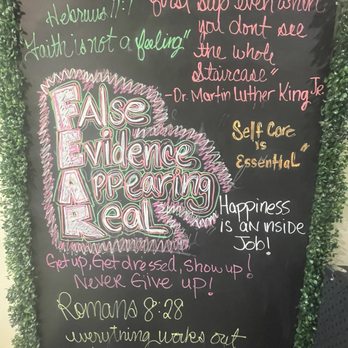 Hebrews 11:1
faith is not a feeling"
first step even when
you dont see
the whole
Staircase"
-Dr. Martin Luther King, Jr.
False
Evidence
Appearing
Real
Self Care
is
Essential"
Happiness
is an inside
Job!
Get up, Get dressed, Show up!
Never Give up!
Romans 8:28
everything works out